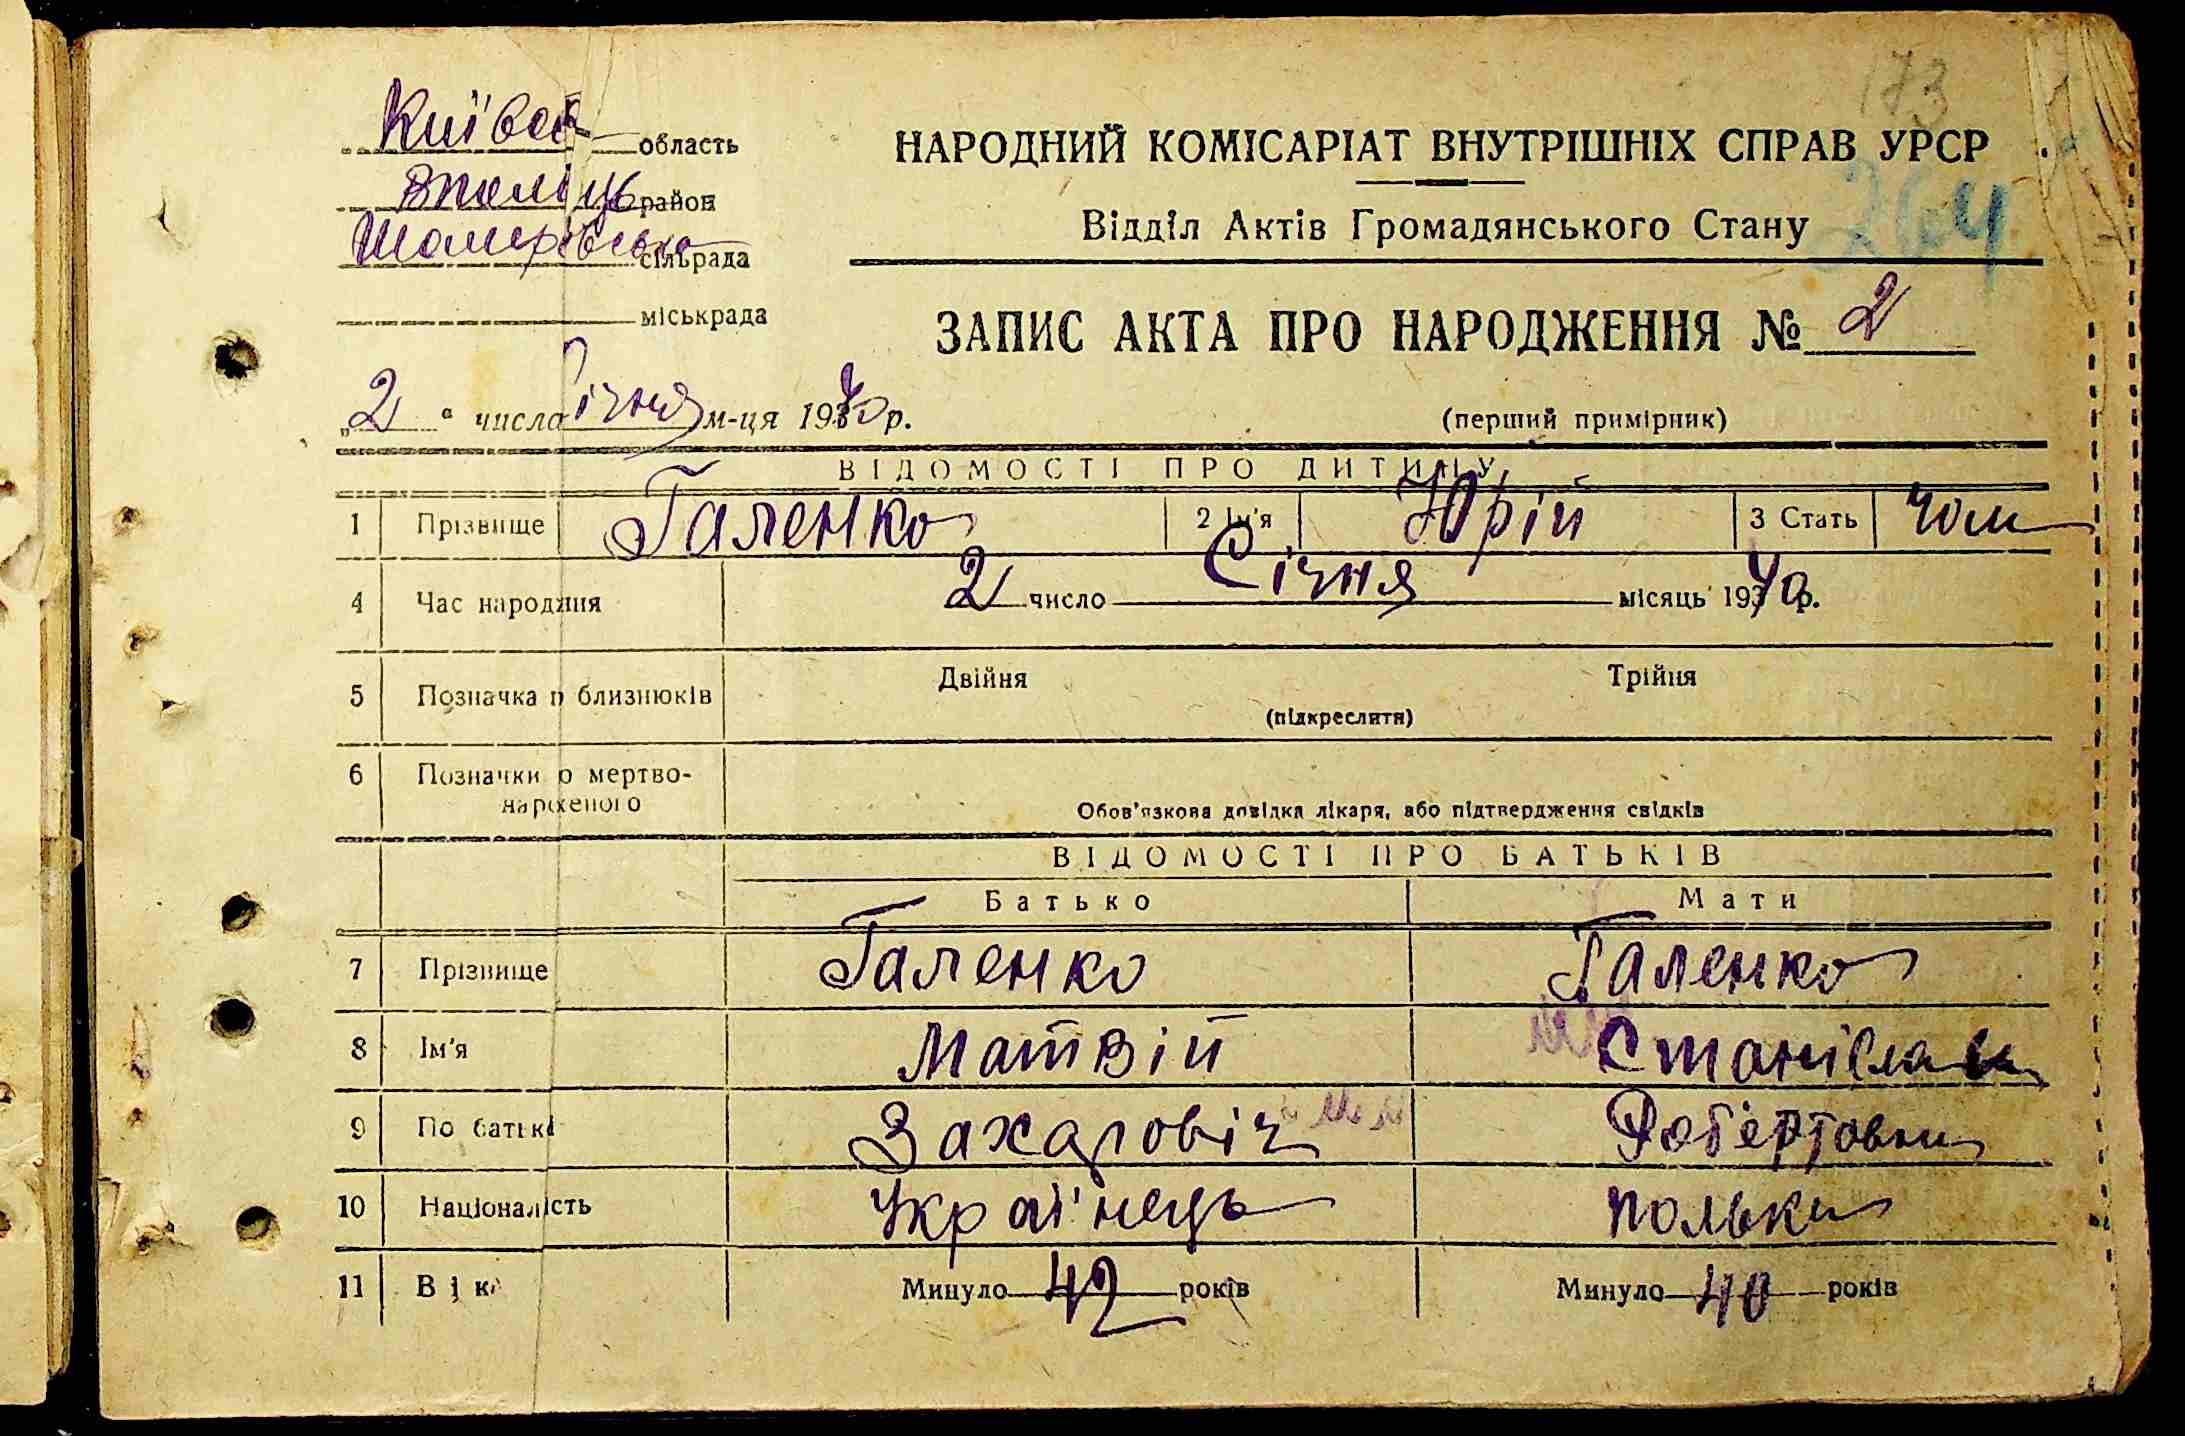 173
Київсь область
район
сільрада
міськрада
НАРОДНИЙ КОМІСАРІАТ ВНУТРІШНІХ СПРАВ УРСР
264
Відділ Актів Громадянського Стану
ЗАПИС АКТА ПРО НАРОДЖЕННЯ № 2
„2“ числа Січня м-ця 1940 р.
(перший примірник)
ВІДОМОСТІ ПРО ДИТИНУ
1 Прізвище Галенко 2 Ім'я Юрій 3 Стать чол
4 Час народння 2 число Січня місяць 1940 р.
5 Позначка п близнюків Двійня Трійня
(підкреслити)
6 Позначки о мертво-
нароженого Обов'язкова довідка лікаря, або підтвердження свідків
ВІДОМОСТІ ПРО БАТЬКІВ
Батько Мати
7 Прізвище Галенко Галенко
8 Ім'я Матвій Станіслава
9 По батькі Захаровіч Робертовна
10 Національність Українець полька
11 Вік Минуло 42 років Минуло 40 років